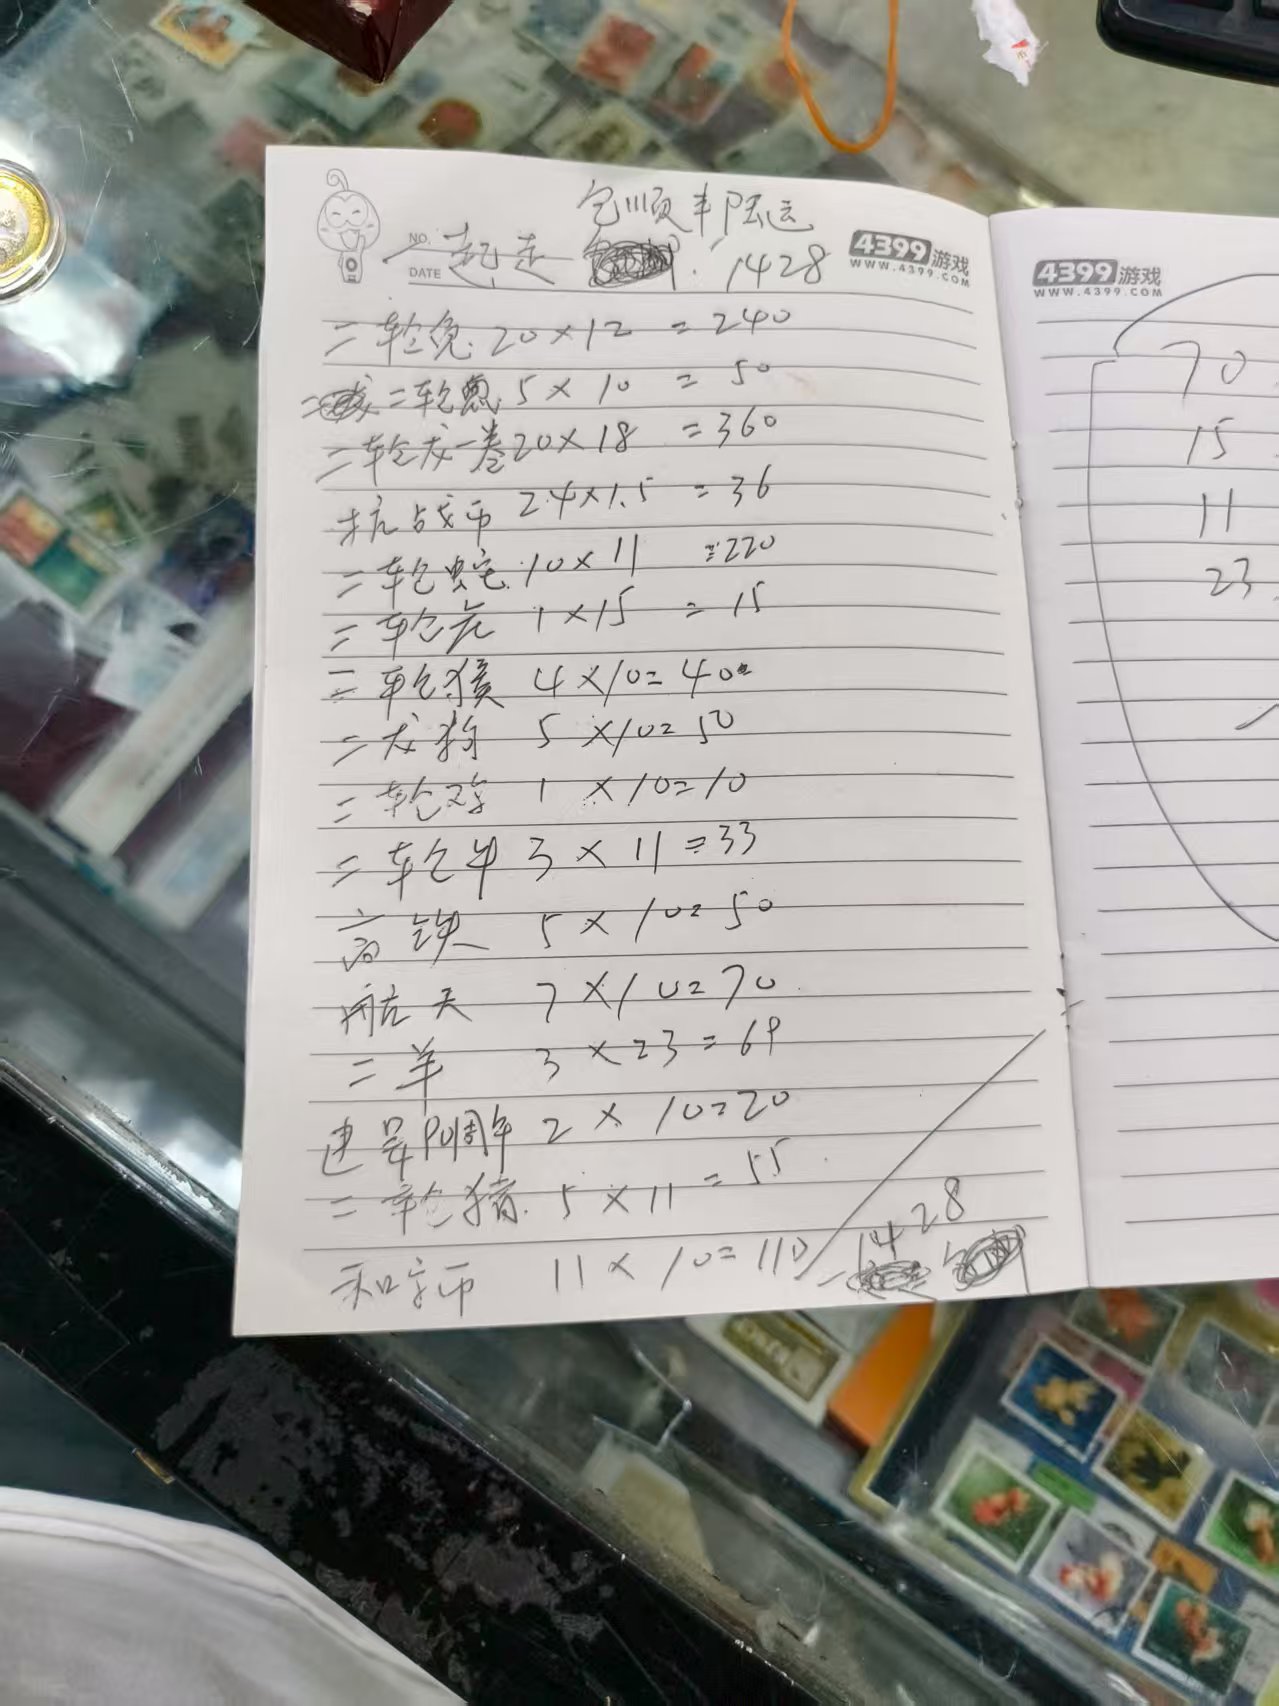 包顺丰陆运
NO.
一起走
1428
DATE
4399游戏
WWW.4399.COM
二轮兔 20×12 =240
二轮 5×10 = 50
二轮龙一卷20×18 =360
抗战币 24×1.5 = 36
二轮蛇 10×11 =220
二轮虎 1×15 = 15
二轮猴 4×10=40
二龙狗 5×10=50
二轮鸡 1×10=10
二轮牛 3×11=33
高铁 5×10=50
航天 7×10=70
二羊 3×23=69
建军周年 2×10=20
二轮猪 5×11 =55
和字币 11×10=110
1428
4399游戏
WWW.4399.COM
70
15
11
23